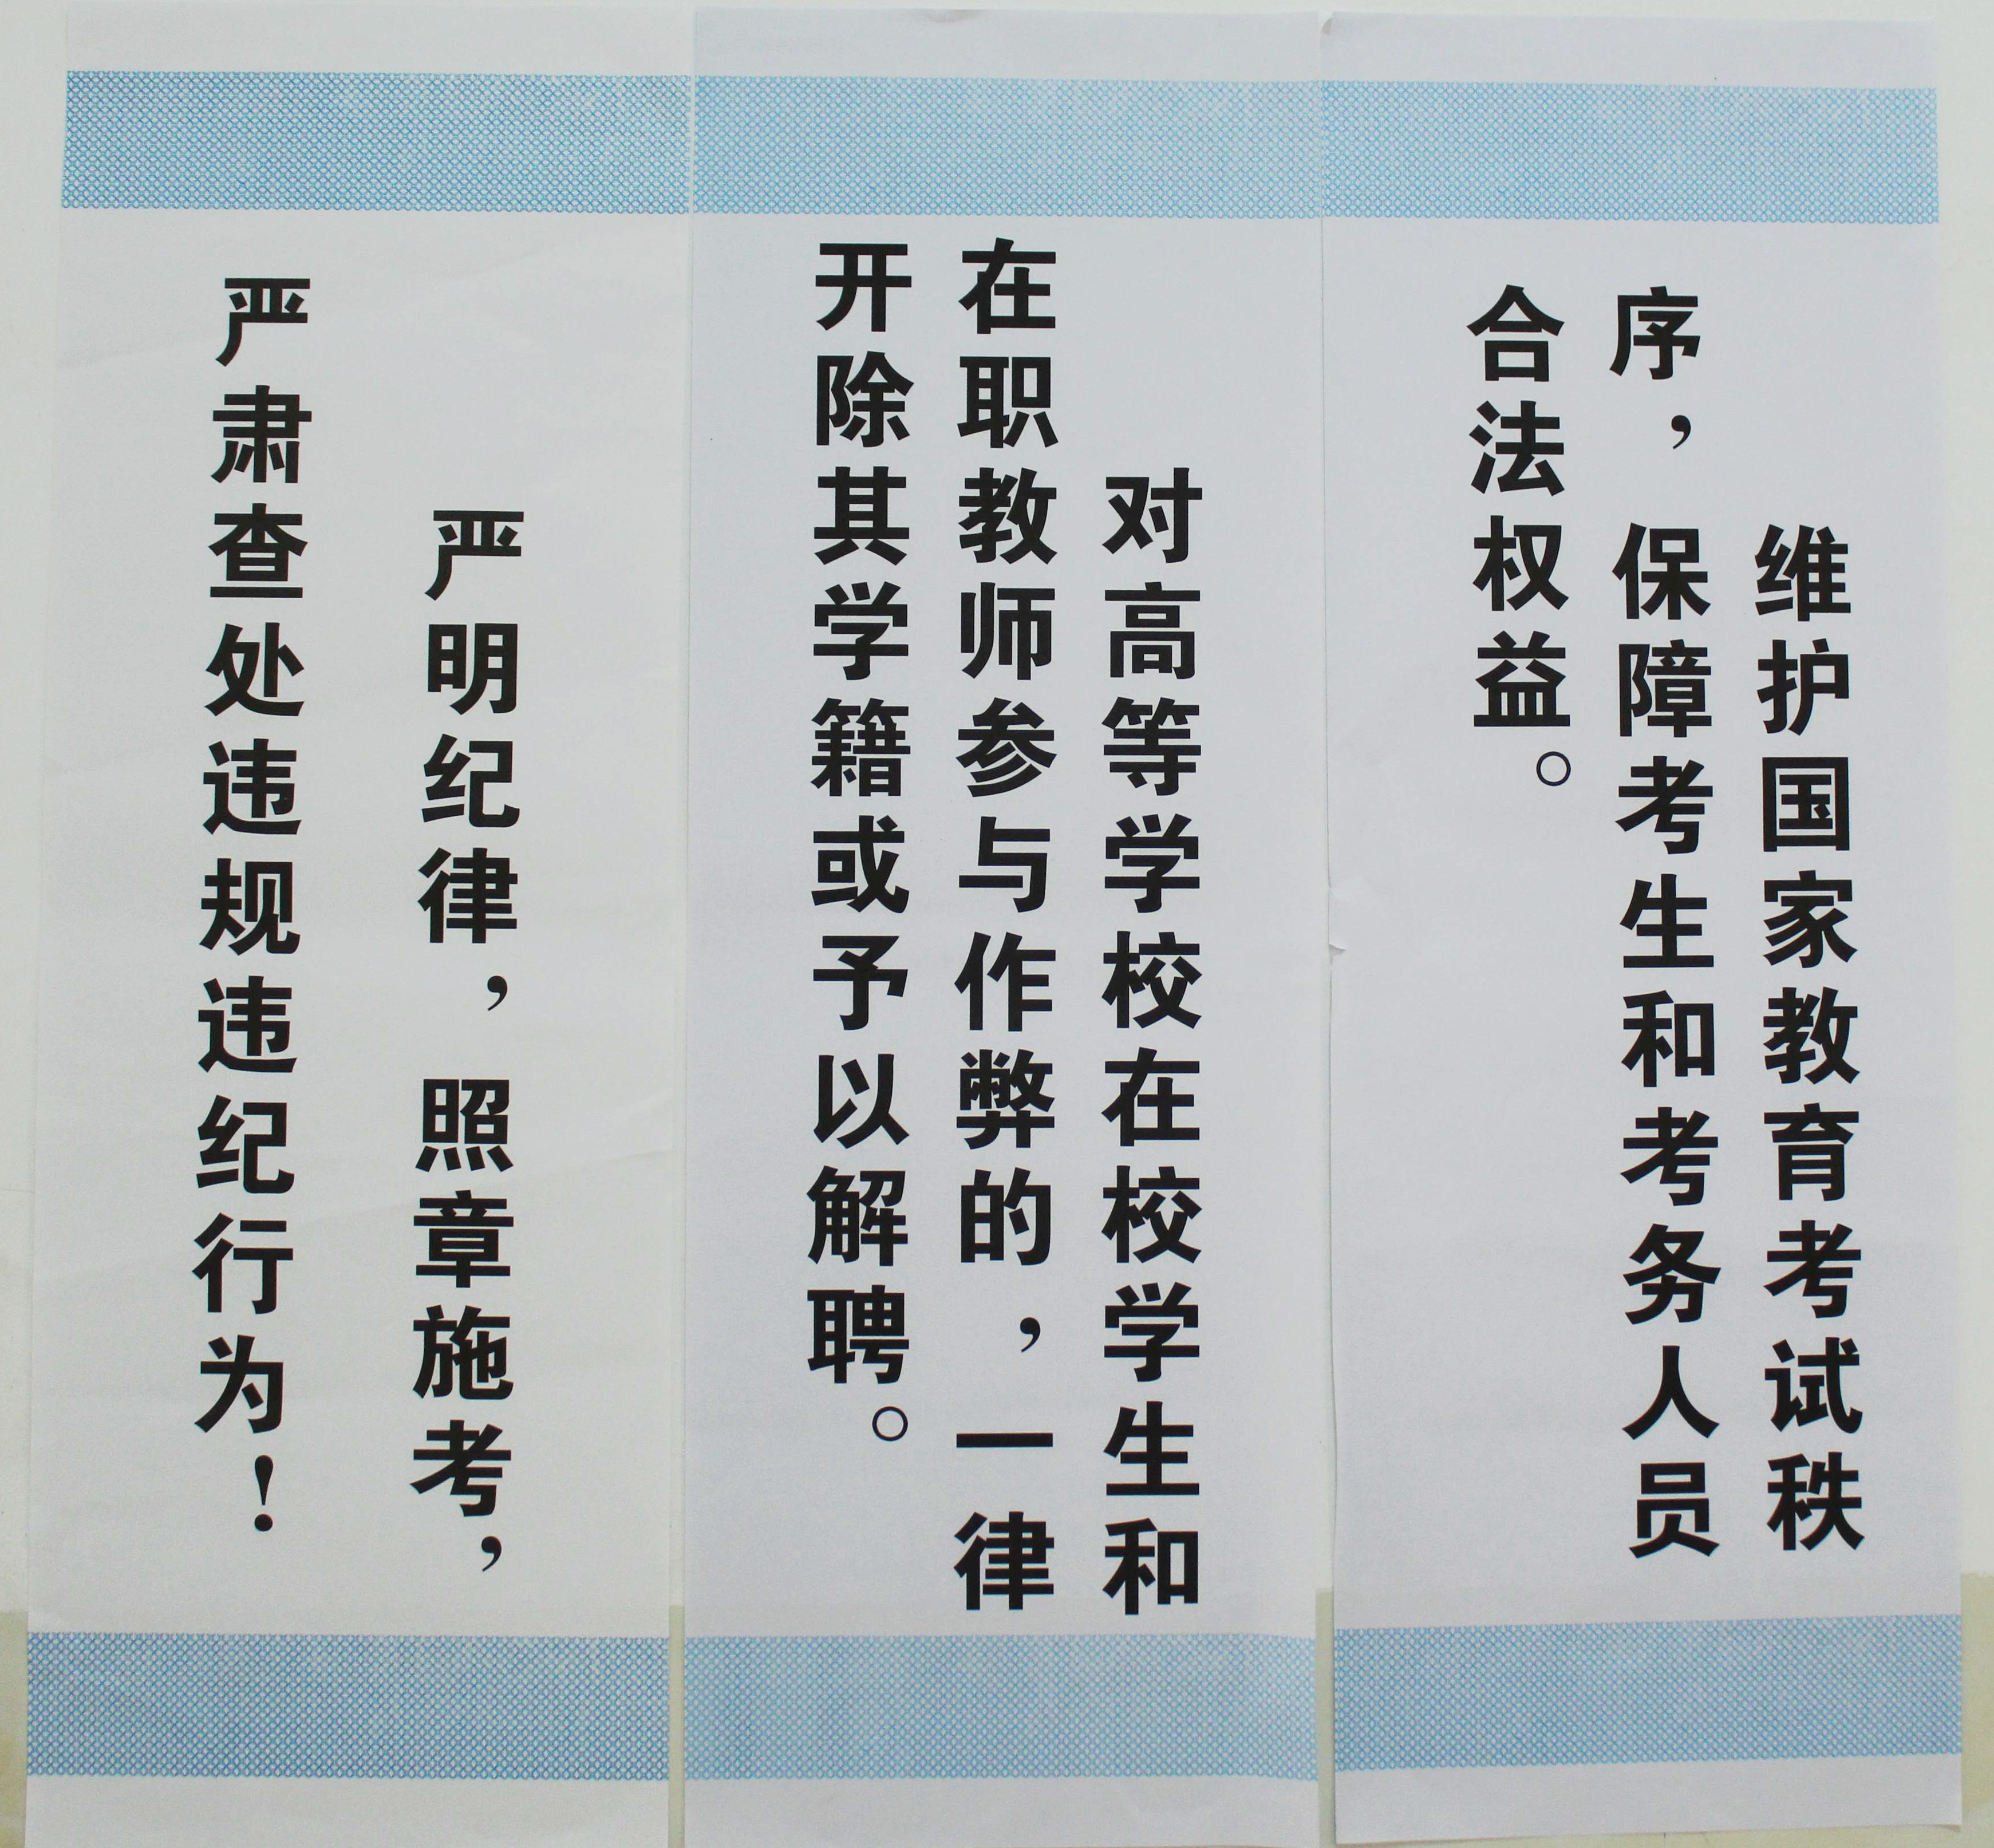 维护国家教育考试秩
序，保障考生和考务人员
合法权益。
对高等学校在校学生和
在职教师参与作弊的，一律
开除其学籍或予以解聘。
严明纪律，照章施考，
严肃查处违规违纪行为！